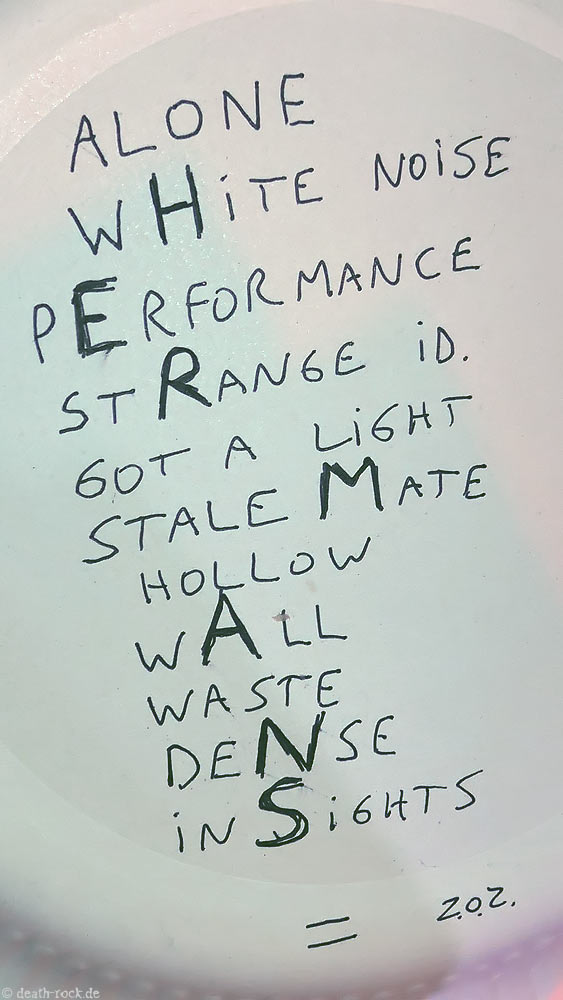 ALONE
WHiTE NOiSE
PERFORMANCE
STRANGE iD.
GOT A LiGHT
STALE MATE
HOLLOW
WALL
WASTE
DENSE
iNSiGHTS
= z.o.z.
© death-rock.de